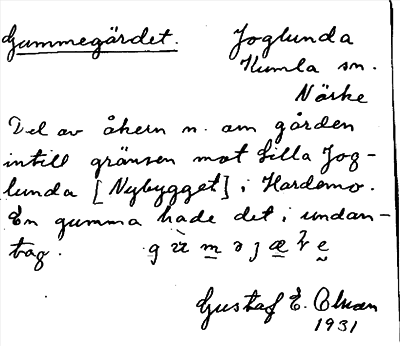 Gummegärdet. Joglunda
Kumla sn.
Närke
Del av åkern n. om gården
intill gränsen mot Lilla Jog-
lunda [Nybygget] i Hardemo.
En gumma hade det i undan-
tag.
Gustaf E.
1931